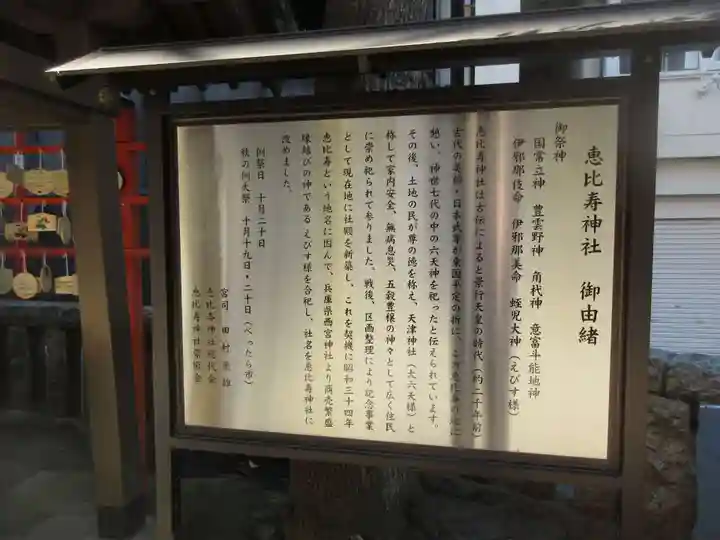 恵比寿神社 御由緒
御祭神
国常立神 豊雲野神 角杙神 意富斗能地神
伊邪那伎命 伊邪那美命 蛭児大神(えびす様)
恵比寿神社は古伝によると景行天皇の時代(約二千年前)
古代の英雄・日本武尊が東国平定の折に、この
憩い、神世七代の中の六天神を祀ったと伝えられています。
その後、土地の民が尊の徳を称え、天津神社(大六天様)と
称して家内安全、無病息災、五穀豊穣の神々として広く住民
に崇め祀られて参りました。戦後、区画整理により記念事業
として現在地に社殿を新築し、これを契機に昭和三十四年
恵比寿という地名に因んで、兵庫県西宮神社より商売繁盛
縁結びの神であるえびす様を合祀し、社名を恵比寿神社に
改めました。
例祭日 十月二十日
秋の例大祭 十月十九日・二十日(べったら市)
宮司 田村
恵比寿神社総代会
恵比寿神社崇敬会